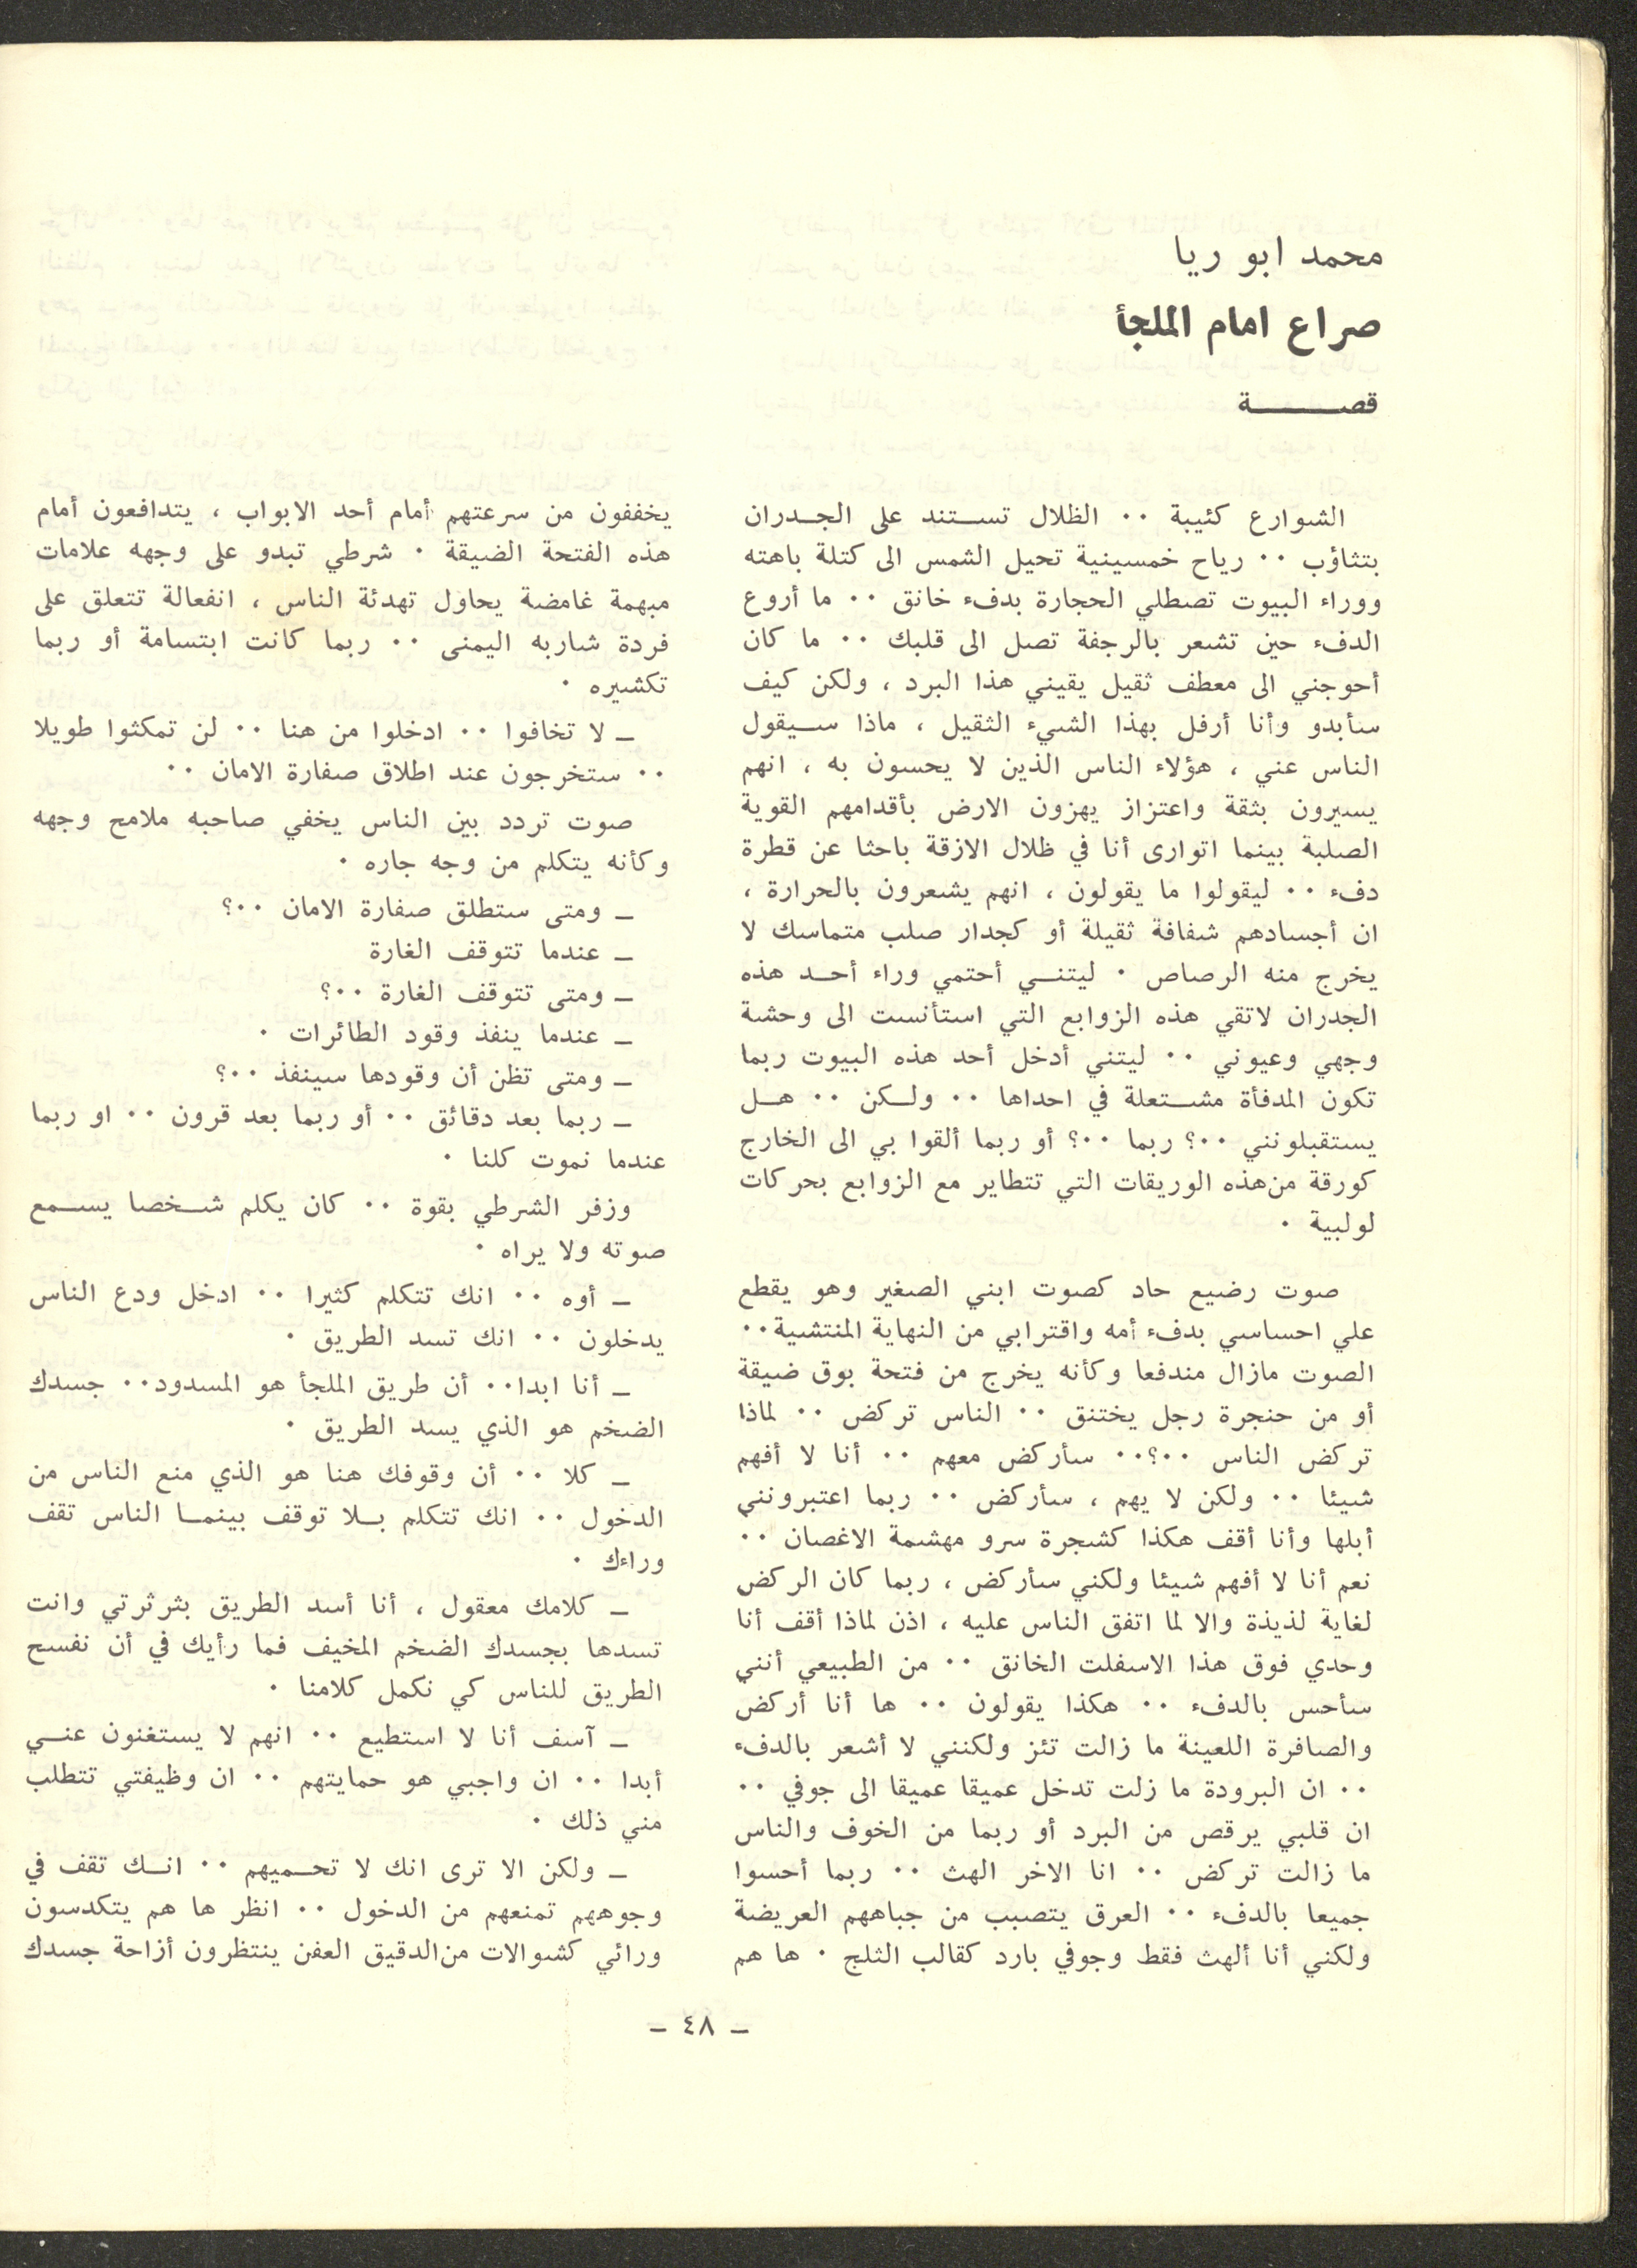 محمد ابو ريا
صراع امام الملجأ
قصـــــــة
الشوارع كئيبة ٠٠ الظلال تستند على الجدران
بتثاؤب ٠٠ رياح خمسينية تحيل الشمس الى كتلة باهته
ووراء البيوت تصطلي الحجارة بدفء خانق ٠٠ ما أروع
الدفء حين تشعر بالرجفة تصل الى قلبك ٠٠ ما كان
أحوجني الى معطف ثقيل يقيني هذا البرد ، ولكن كيف
سأبدو وأنا أرفل بهذا الشيء الثقيل ، ماذا سيقول
الناس عني ، هؤلاء الناس الذين لا يحسون به ، انهم
يسيرون بثقة واعتزاز يهزون الارض بأقدامهم القوية
الصلبة بينما اتوارى أنا في ظلال الازقة باحثا عن قطرة
دفء ٠٠ ليقولوا ما يقولون ، انهم يشعرون بالحرارة ،
ان أجسادهم شفافة ثقيلة أو كجدار صلب متماسك لا
يخرج منه الرصاص ٠ ليتني أحتمي وراء أحد هذه
الجدران لاتقي هذه الزوابع التي استأنست الى وحشة
وجهي وعيوني ٠٠ ليتني أدخل أحد هذه البيوت ربما
تكون المدفأة مشتعلة في احداها ٠٠ ولكن ٠٠ هل
يستقبلونني ٠٠؟ ربما ٠٠؟ أو ربما ألقوا بي الى الخارج
كورقة من هذه الوريقات التي تتطاير مع الزوابع بحركات
لولبية ٠
صوت رضيع حاد كصوت ابني الصغير وهو يقطع
علي احساسي بدفء أمه واقترابي من النهاية المنتشية٠٠
الصوت مازال مندفعا وكأنه يخرج من فتحة بوق ضيقة
أو من حنجرة رجل يختنق ٠٠ الناس تركض ٠٠ لماذا
تركض الناس ٠٠؟٠٠ سأركض معهم ٠٠ أنا لا أفهم
شيئا ٠٠ ولكن لا يهم ، سأركض ٠٠ ربما اعتبرونني
أبلها وأنا أقف هكذا كشجرة سرو مهشمة الاغصان ٠٠
نعم أنا لا أفهم شيئا ولكني سأركض ، ربما كان الركض
لغاية لذيذة والا لما اتفق الناس عليه ، اذن لماذا أقف أنا
وحدي فوق هذا الاسفلت الخانق ٠٠ من الطبيعي أنني
سأحس بالدفء ٠٠ هكذا يقولون ٠٠ ها أنا أركض
والصافرة اللعينة ما زالت تئز ولكنني لا أشعر بالدفء
٠٠ ان البرودة ما زلت تدخل عميقا عميقا الى جوفي ٠٠
ان قلبي يرقص من البرد أو ربما من الخوف والناس
ما زالت تركض ٠٠ انا الاخر الهث ٠٠ ربما أحسوا
جميعا بالدفء ٠٠ العرق يتصبب من جباههم العريضة
ولكني أنا ألهث فقط وجوفي بارد كقالب الثلج ٠ ها هم
يخففون من سرعتهم أمام أحد الابواب ، يتدافعون أمام
هذه الفتحة الضيقة ٠ شرطي تبدو على وجهه علامات
مبهمة غامضة يحاول تهدئة الناس ، انفعالة تتعلق على
فردة شاربه اليمنى ٠٠ ربما كانت ابتسامة أو ربما
تكشيره ٠
ـ لا تخافوا ٠٠ ادخلوا من هنا ٠٠ لن تمكثوا طويلا
٠٠ ستخرجون عند اطلاق صفارة الامان ٠٠
صوت تردد بين الناس يخفي صاحبه ملامح وجهه
وكأنه يتكلم من وجه جاره ٠
ـ ومتى ستطلق صفارة الامان ٠٠؟
ـ عندما تتوقف الغارة
ـ ومتى تتوقف الغارة ٠٠؟
ـ عندما ينفذ وقود الطائرات ٠
ـ ومتى تظن أن وقودها سينفذ ٠٠؟
ـ ربما بعد دقائق ٠٠ أو ربما بعد قرون ٠٠ او ربما
عندما نموت كلنا ٠
وزفر الشرطي بقوة ٠٠ كان يكلم شخصا يسمع
صوته ولا يراه ٠
ـ أوه ٠٠ انك تتكلم كثيرا ٠٠ ادخل ودع الناس
يدخلون ٠٠ انك تسد الطريق ٠
ـ أنا ابدا٠٠ أن طريق الملجأ هو المسدود٠٠ جسدك
الضخم هو الذي يسد الطريق ٠
ـ كلا ٠٠ أن وقوفك هنا هو الذي منع الناس من
الدخول ٠٠ انك تتكلم بلا توقف بينما الناس تقف
وراءك ٠
ـ كلامك معقول ، أنا أسد الطريق بثرثرتي وانت
تسدها بجسدك الضخم المخيف فما رأيك في أن نفسح
الطريق للناس كي نكمل كلامنا ٠
ـ آسف أنا لا استطيع ٠٠ انهم لا يستغنون عني
أبدا ٠٠ ان واجبي هو حمايتهم ٠٠ ان وظيفتي تتطلب
مني ذلك ٠
ـ ولكن الا ترى انك لا تحميهم ٠٠ انك تقف في
وجوههم تمنعهم من الدخول ٠٠ انظر ها هم يتكدسون
ورائي كشوالات من الدقيق العفن ينتظرون أزاحة جسدك
ـ ٤٨ ـ